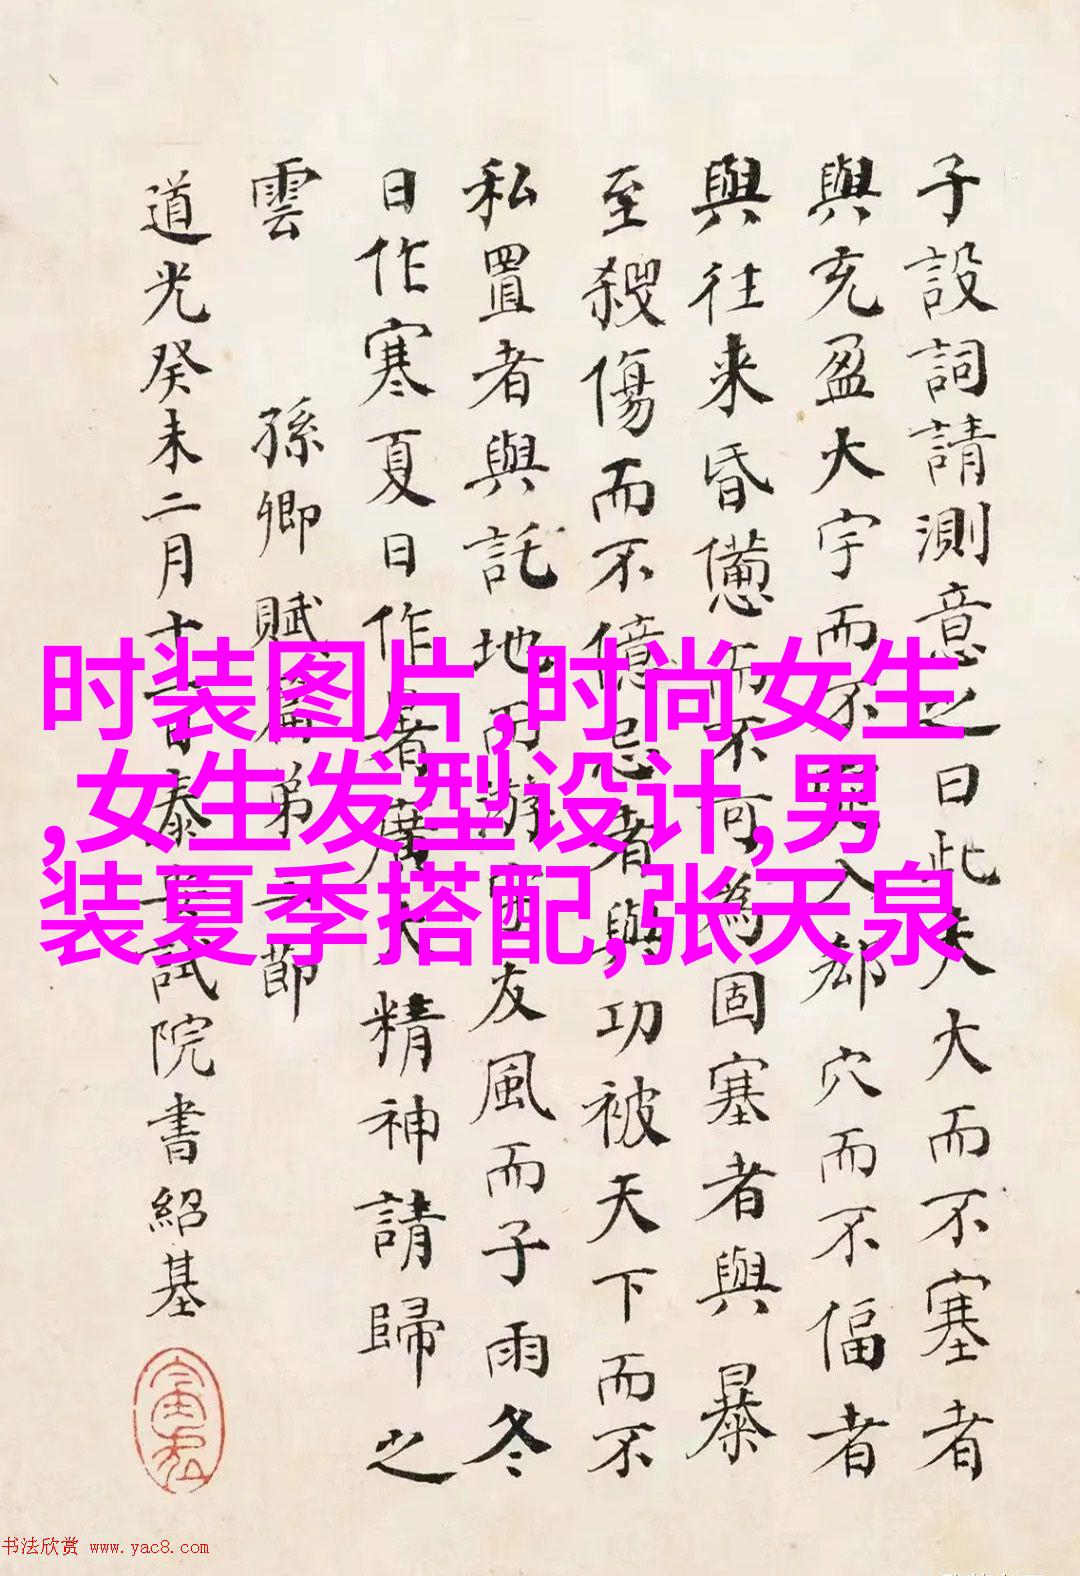 子設詞請測意之曰此夫大而不塞者
與充盈大宇而不 入郄穴而不偪者
與往来昏憊而不可為固塞者與暴
至殺傷而不億忌者與功被天下而不
私置者與託地而游 友風而子雨冬
日作寒夏日作暑廣大精神請歸之
雲
孫卿賦篇弟 節
道光癸未二月十 日泰 試院書紹基
时装图片,时尚女生
,女生发型设计,男
装夏季搭配,张天泉
书法欣赏 www.yac8.com